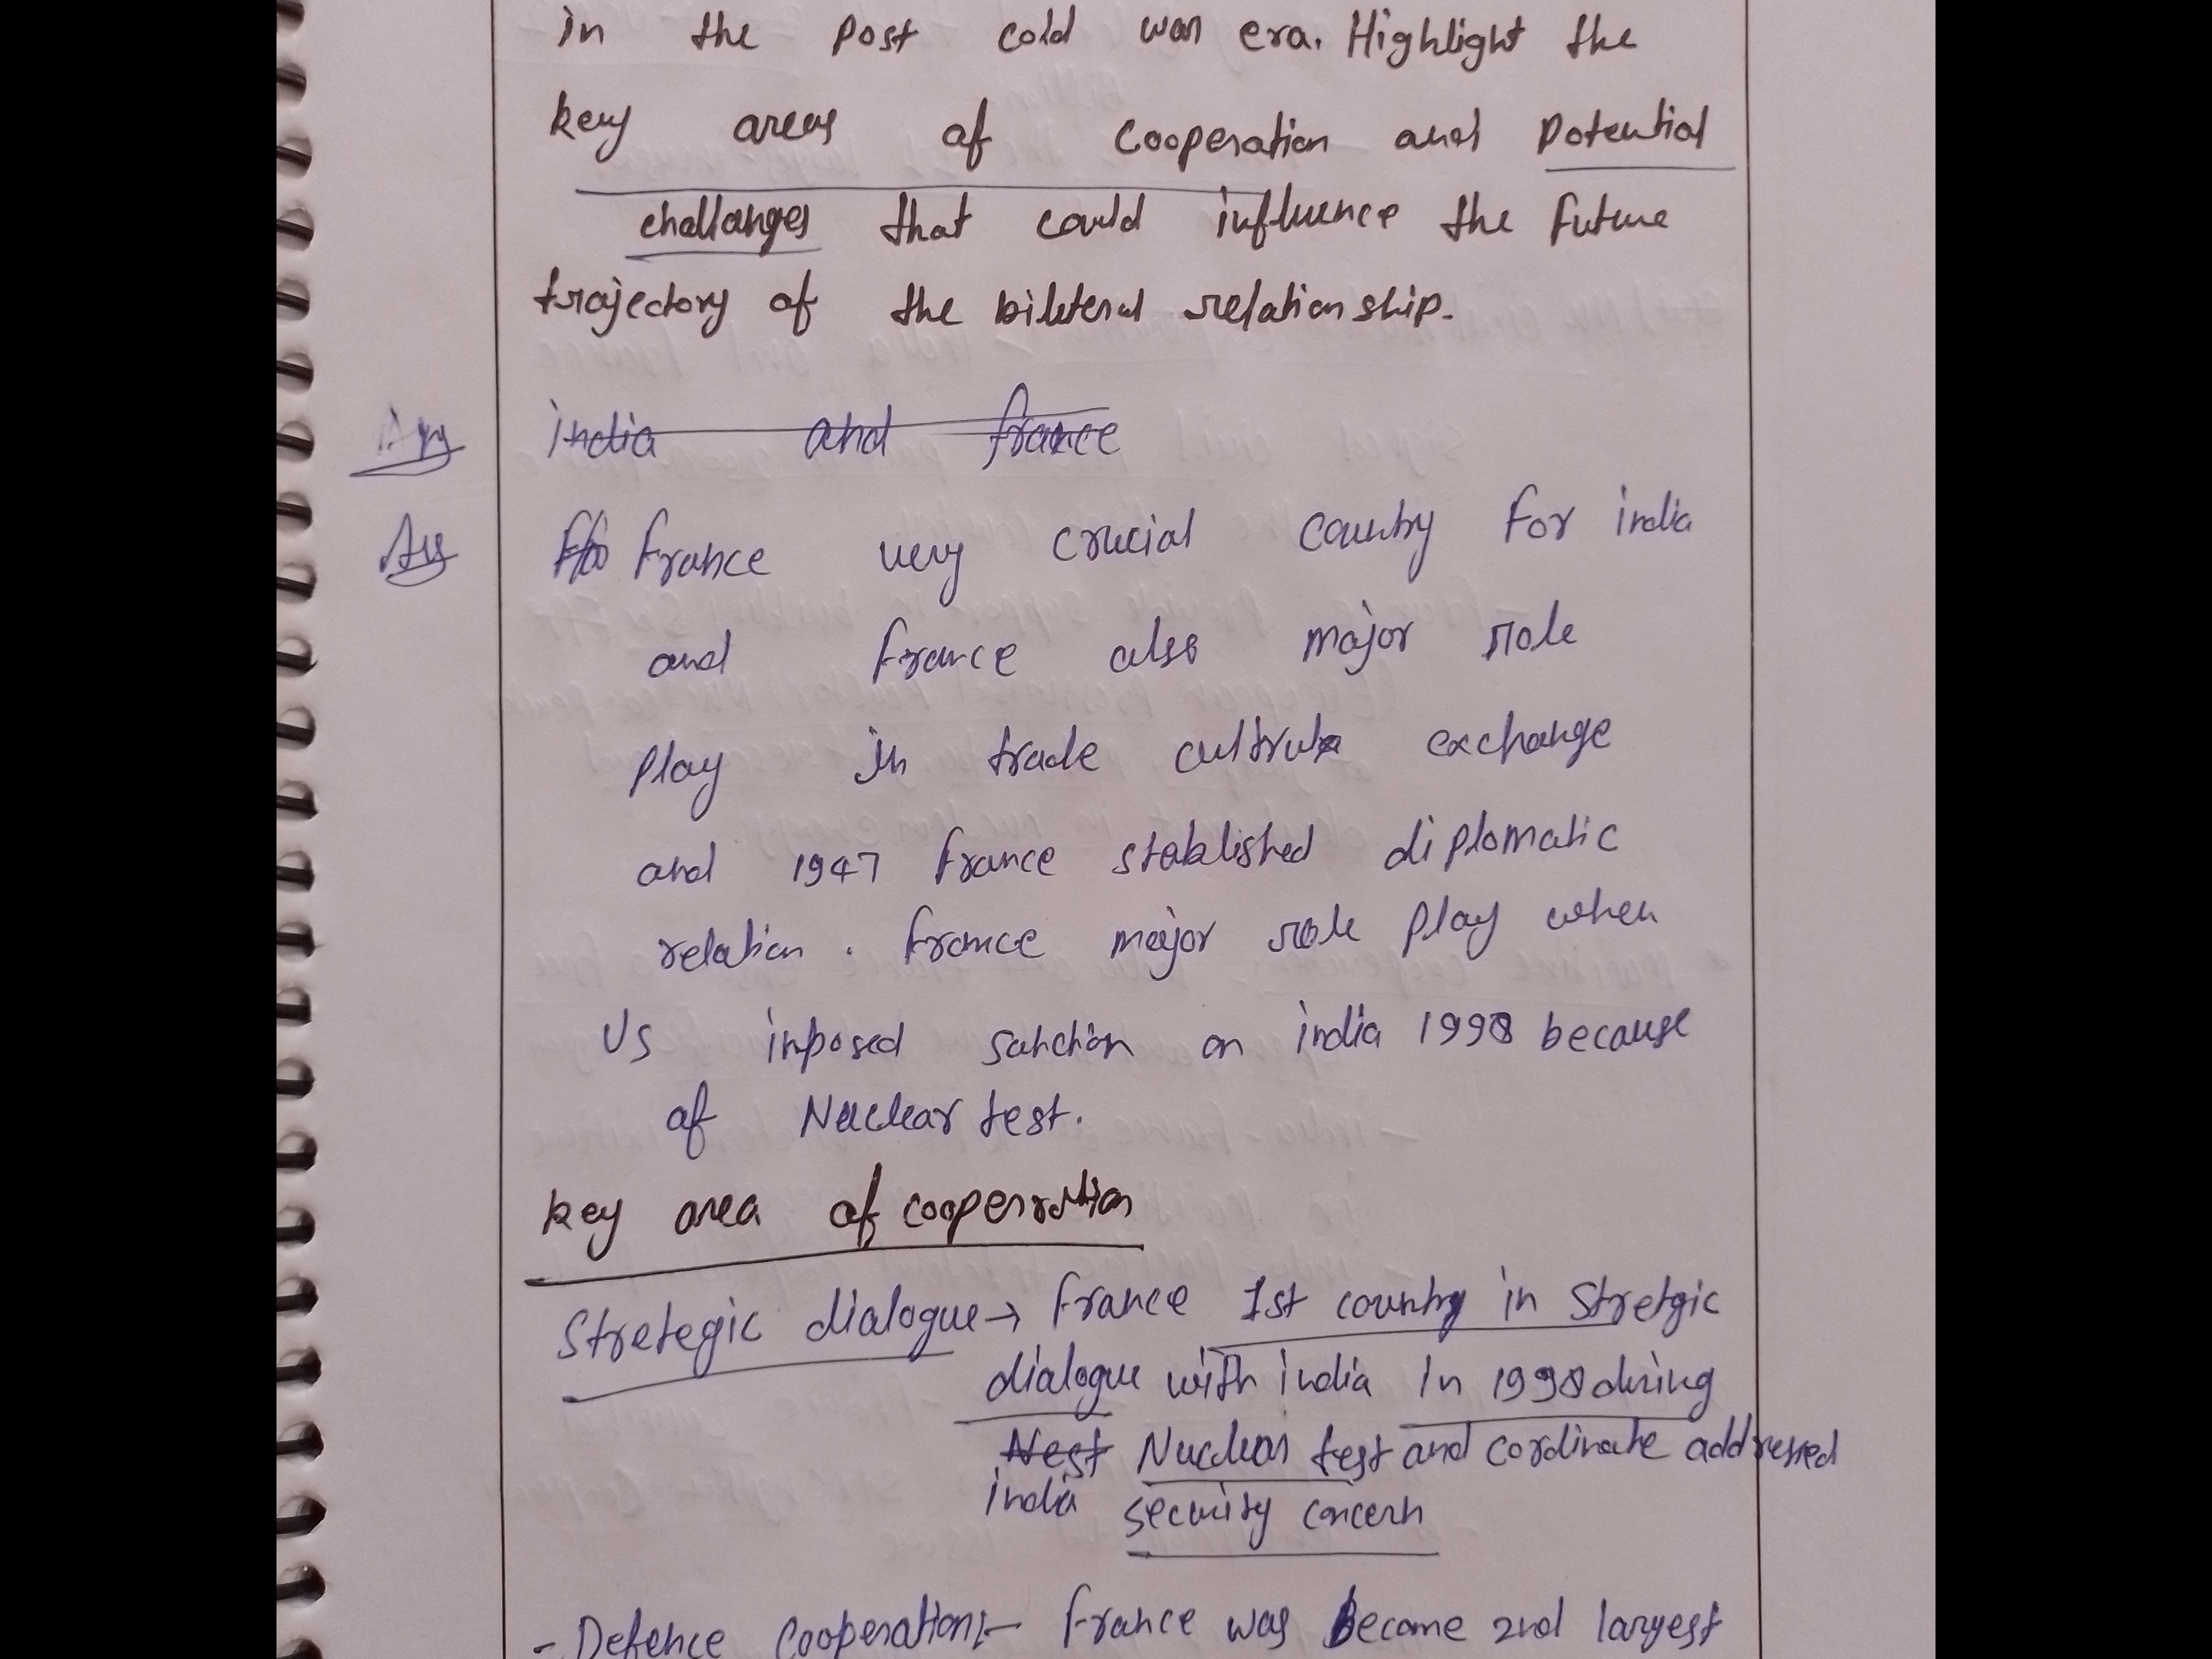 in the Post cold war era. Highlight the
key areas of cooperation and potential
challanges that could influence the future
trajectory of the bilateral relationship.
India and france
Ans france very crucial country for india
and france also major role
play in trade cultrula exchange
and 1947 france stablished diplomatic
relation. france major role play when
US imposed sanction on india 1998 because
of Nuclear test.
key area of cooperration
Stretegic dialogue → france 1st country in Stretgic
dialogue with india In 1998 during
Nest Nuclear test and cordinate addressed
india security concern
- Defence Cooperation:- france was Become 2nd largest